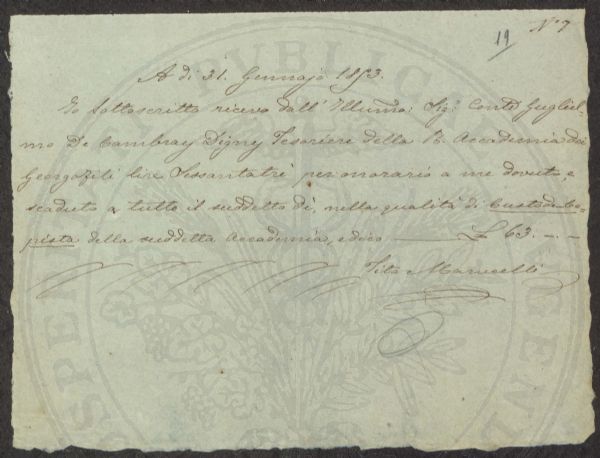 N° 7
19
A dì 31. Gennajo 1853.
Io Sottoscritto ricevo dall' Illumo: Sig: Conte Gugliel-
mo De Cambray Digny Tesoriere della R. Accademia dei
Georgofili lire Sessantatrè per onorario a me dovuto, e
scaduto a tutto il suddetto dì, nella qualità di Custode Co-
pista della suddetta Accademia, e dico ——— £ 63. –. –
Tito Marucelli
PUBBLICA
PROSPERI